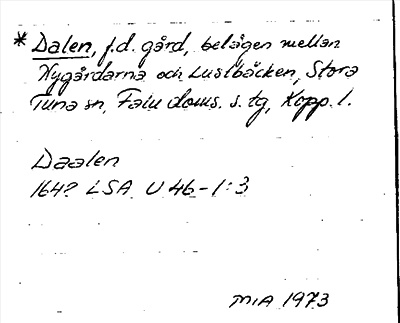 * Dalen, f.d. gård, belägen mellan
Nygårdarna och Lustbäcken, Stora
Tuna sn, Falu doms. s. tg, Kopp. l.
Daalen
164? LSA U 46-1:3
MIA 1973